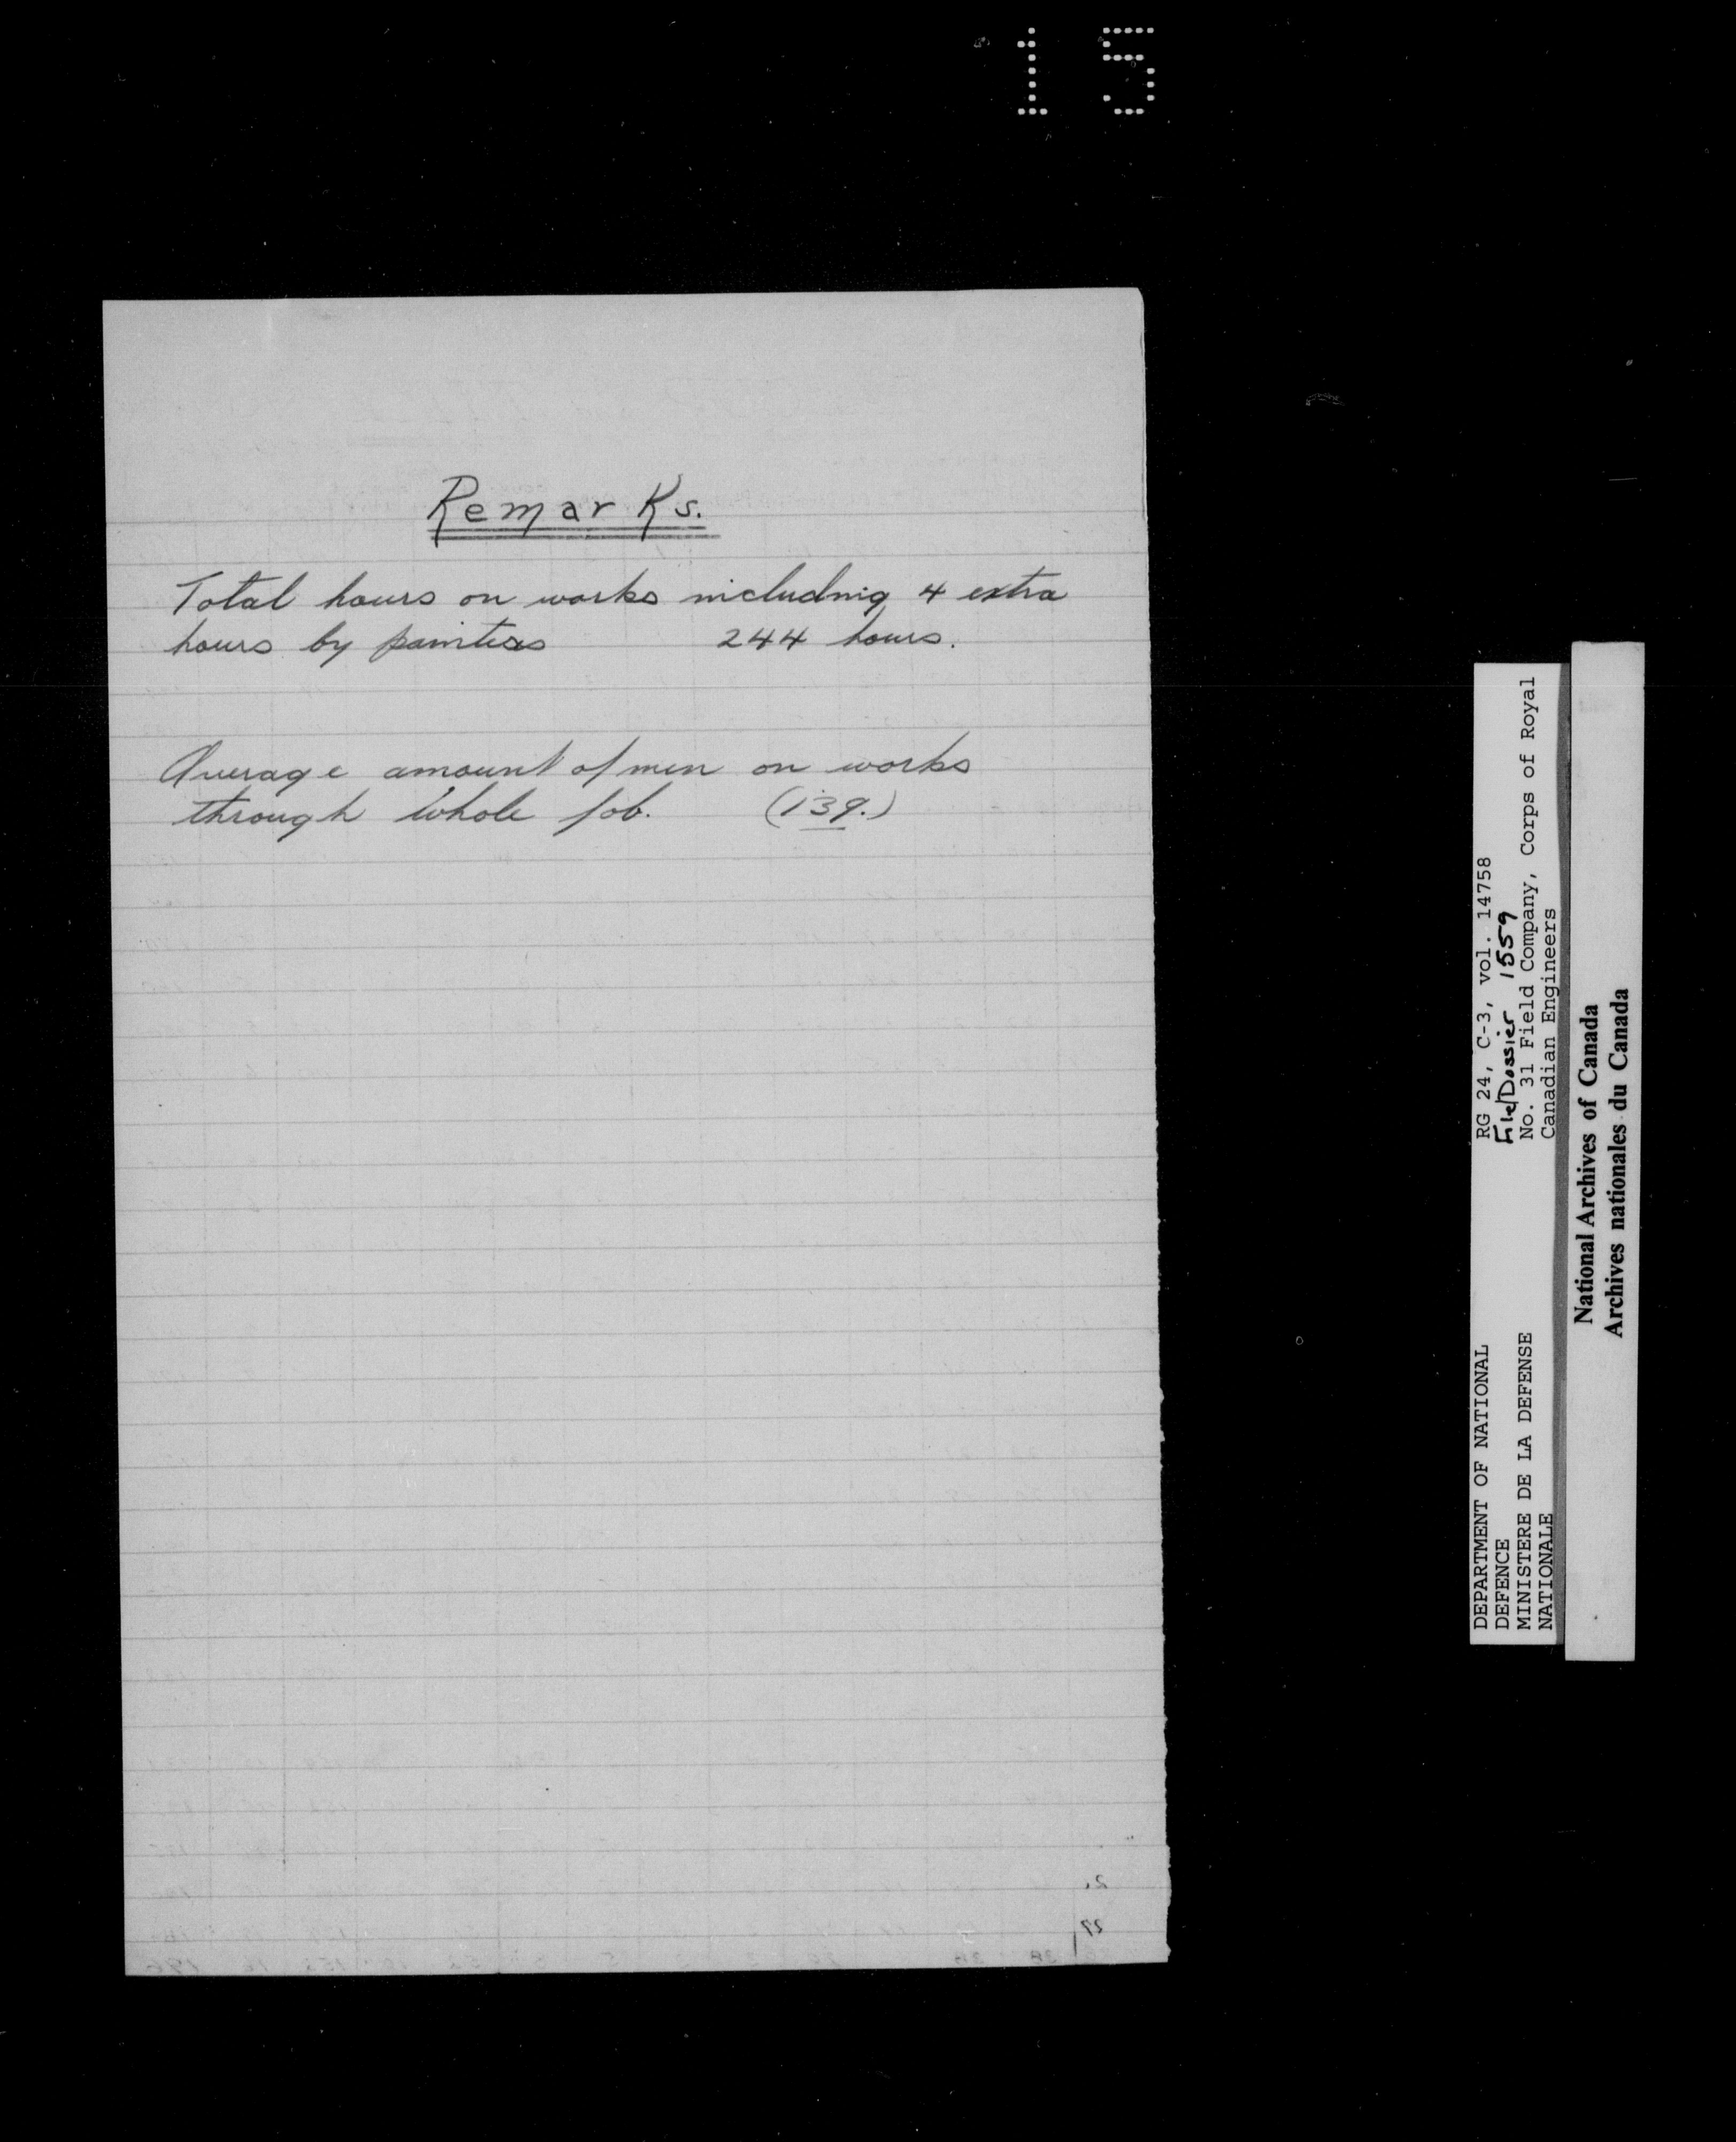 15
Remarks.
Total hours on works including 4 extra
hours by painters 244 hours.
Average amount of men on works
through whole job. (139.)
RG 24, C-3, vol. 14758
File/Dossier 1559
No. 31 Field Company, Corps of Royal
Canadian Engineers
DEPARTMENT OF NATIONAL
DEFENCE
MINISTERE DE LA DEFENSE
NATIONALE
National Archives of Canada
Archives nationales du Canada